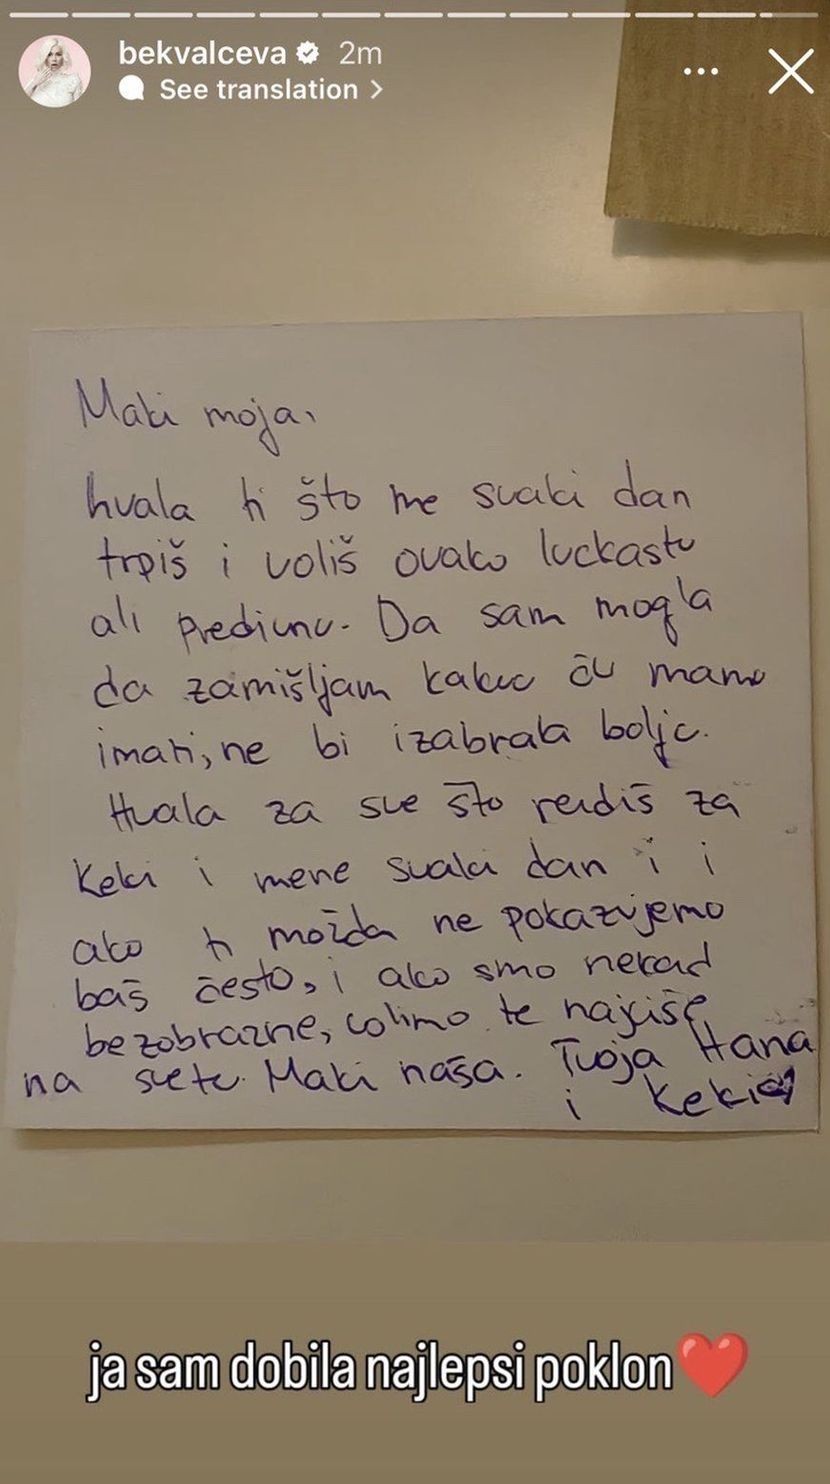 bekvalceva 2m
See translation
Maki moja,
hvala ti što me svaki dan
trpiš i voliš ovako luckastu
ali predivnu. Da sam mogla
da zamišljam kakvu ću mamu
imati, ne bi izabrala bolju.
Hvala za sve što radiš za
Keki i mene svaki dan i i
ako ti možda ne pokazujemo
baš često, i ako smo nekad
bezobrazne, volimo te najviše
na svetu. Maki naša. Tvoja Hana
i Keki
ja sam dobila najlepsi poklon❤️